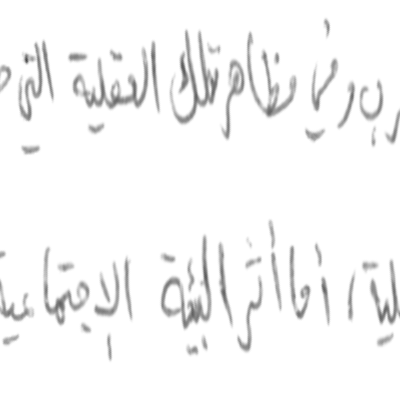 وفي مظاهر تلك العقلية التي
، أما أثر البيئة الإجتماعية